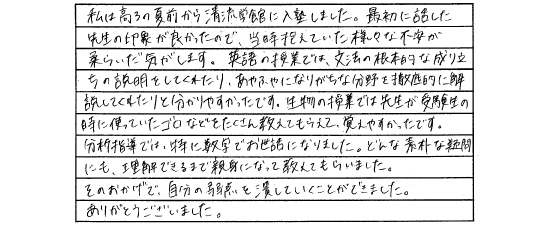 私は高3の夏前から清流学館に入塾しました。最初に話した
先生の印象が良かったので、当時抱えていた様々な不安が
柔らいだ気がします。英語の授業では、文法の根本的な成り立
ちの説明をしてくれたり、あやふやになりがちな分野を徹底的に解
説してくれたりと分かりやすかったです。生物の授業では先生が受験生の
時に使っていたゴロなどをたくさん教えてもらえて、覚えやすかったです。
分析指導では、特に数学でお世話になりました。どんな素朴な疑問
にも、理解できるまで親身になって教えてもらいました。
そのおかげで、自分の弱点を潰していくことができました。
ありがとうございました。